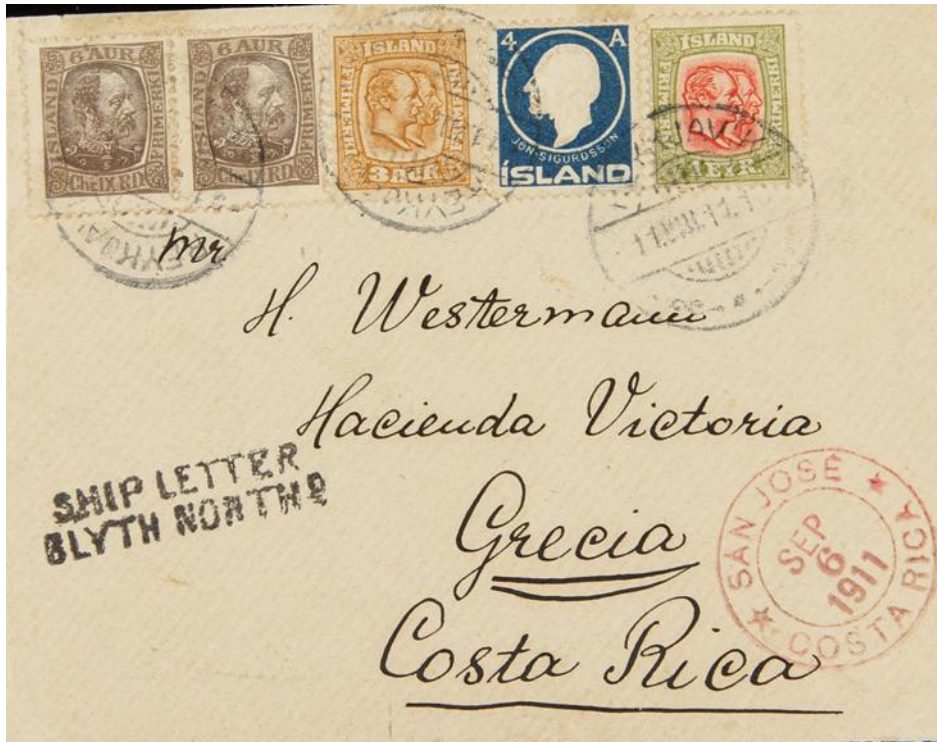 6 AUR
ÍSLAND
FRIMERKI
Chr IX RD
6 AUR
ÍSLAND
FRIMERKI
Chr IX RD
ÍSLAND
FRIMERKI
3 AUR
4 A
JÓN·SIGURDSSON
ÍSLAND
ÍSLAND
FRIMERKI
1 EYR.
Mr.
H. Westermann
Hacienda Victoria
Grecia
Costa Rica
SHIP LETTER
BLYTH NORTHD
SAN JOSÉ
SEP
6
1911
COSTA RICA